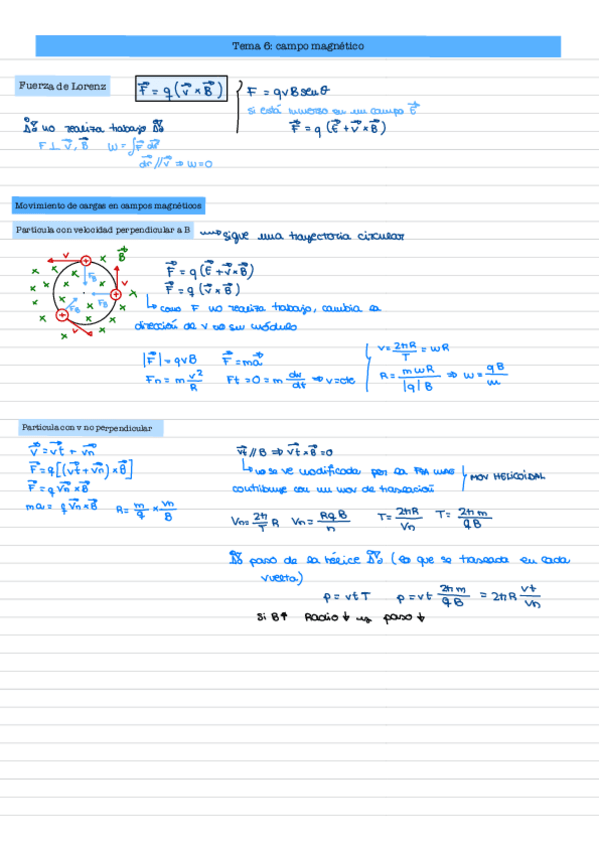 Tema 6: campo magnético
Fuerza de Lorenz
F⃗ = q (v⃗ × B⃗)
F = qvB senθ
si está inmerso en un campo E⃗
F⃗ = q (E⃗ + v⃗ × B⃗)
no realiza trabajo
F ⊥ v⃗, B⃗ W = ∫F⃗ dr⃗
dr⃗ // v⃗ ⇒ W = 0
Movimiento de cargas en campos magnéticos
Partícula con velocidad perpendicular a B
sigue una trayectoria circular
F⃗ = q (E⃗ + v⃗ × B⃗)
F⃗ = q (v⃗ × B⃗)
como F no realiza trabajo, cambia la
dirección de v no su módulo
|F⃗| = qvB F⃗ = ma⃗
Fn = m v²/R Ft = 0 = m dv/dt ⇒ v = cte
v = 2πR/T = wR
R = mwR/|q|B ⇒ w = qB/m
v
B⃗
FB
v
FB
FB
v
Partícula con v no perpendicular
v⃗ = v⃗t + v⃗n
F⃗ = q[(v⃗t + v⃗n) × B⃗]
F⃗ = q v⃗n × B⃗
ma = q v⃗n × B⃗ R = m/q × vn/B
v⃗t // B ⇒ v⃗t × B⃗ = 0
no se ve modificada por la
contribuye con un mov de
MOV HELICOIDAL
Vn = 2π/T R Vn = RqB/n T = 2πR/Vn T = 2πm/qB
paso de la hélice (lo que se traslada en cada
vuelta)
p = vt T p = vt 2πm/qB = 2πR vt/vn
Si B↑ Radio ↓ paso ↓